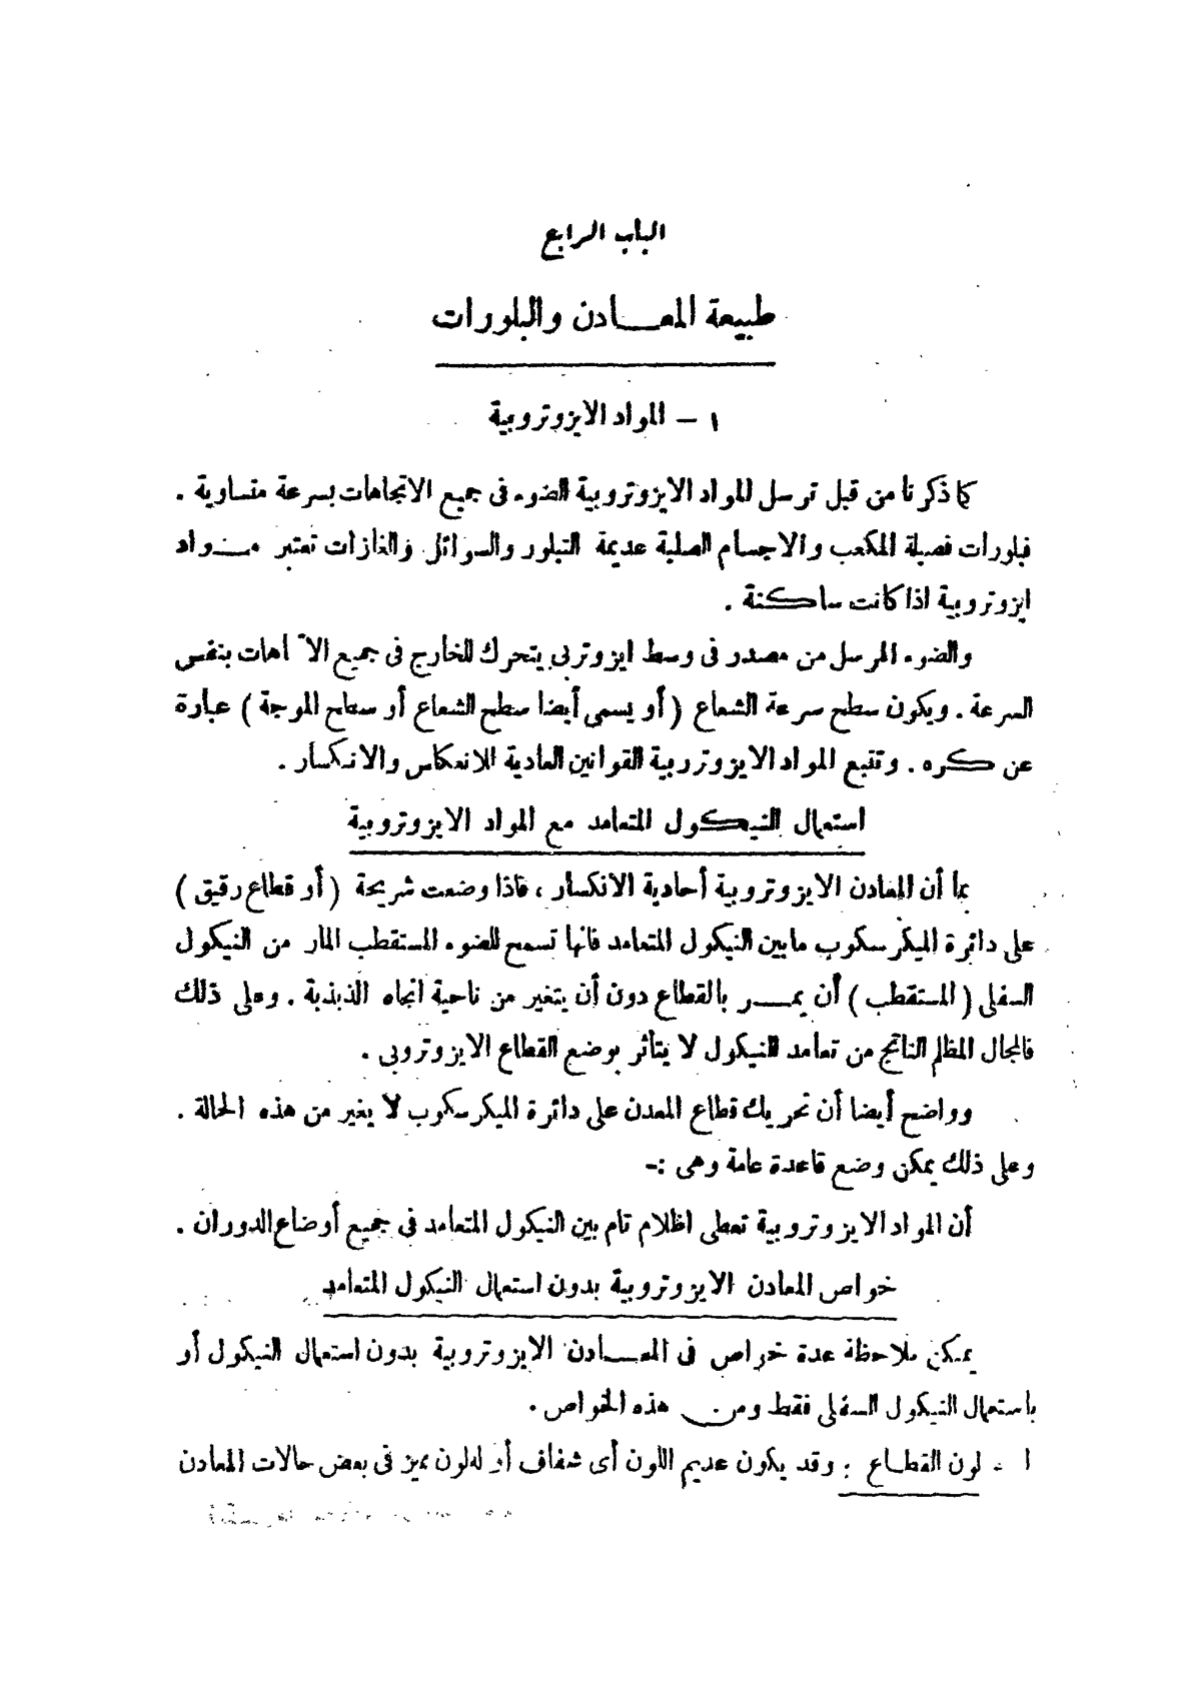 الباب الرابع
طبيعة المعادن والبلورات
١ – المواد الايزوتروبية
كما ذكرنا من قبل ترسل المواد الايزوتروبية الضوء فى جميع الاتجاهات بسرعة متساوية .
فبلورات فصيلة المكعب والاجسام الصلبة عديمة التبلور والسوائل والغازات تعتبر مواد
ايزوتروبية اذا كانت ساكنة .
والضوء المرسل من مصدر فى وسط ايزوتربى يتحرك للخارج فى جميع الا اهات بنفس
السرعة . ويكون سطح سرعة الشعاع ( أو يسمى أيضا سطح الشعاع أو سطح الموجة ) عبارة
عن كره . وتتبع المواد الايزوتروبية القوانين العادية للانعكاس والانكسار .
استعمال النيكول المتعامد مع المواد الايزوتروبية
بما أن المعادن الايزوتروبية أحادية الانكسار ، فاذا وضعت شريحة ( أو قطاع رقيق )
على دائرة الميكرسكوب مابين النيكول المتعامد فانها تسمح للضوء المستقطب المار من النيكول
السفلى ( المستقطب ) أن يمر بالقطاع دون أن يتغير من ناحية اتجاه الذبذبة . وعلى ذلك
فالمجال المظلم الناتج من تعامد النيكول لا يتأثر بوضع القطاع الايزوتروبى .
وواضح أيضا أن تحريك قطاع المعدن على دائرة الميكرسكوب لا يغير من هذه الحالة .
وعلى ذلك يمكن وضع قاعدة عامة وهى :-
أن المواد الايزوتروبية تعطى اظلام تام بين النيكول المتعامد فى جميع أوضاع الدوران .
خواص المعادن الايزوتروبية بدون استعمال النيكول المتعامد
يمكن ملاحظة عدة خواص فى المعادن الايزوتروبية بدون استعمال النيكول أو
باستعمال النيكول السفلى فقط ومن هذه الخواص .
ا - لون القطاع : وقد يكون عديم اللون أى شفاف أو له لون مميز فى بعض حالات المعادن